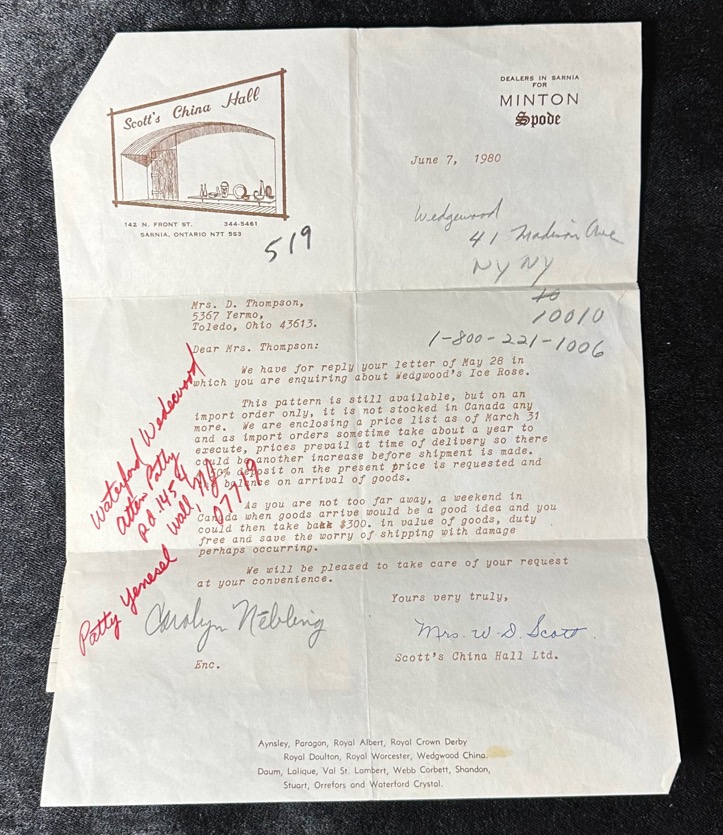 Scott's China Hall
142 N. FRONT ST. 344-5461
SARNIA, ONTARIO N7T 5S3
519
DEALERS IN SARNIA
FOR
MINTON
Spode
June 7, 1980
Wedgewood
41 Madison Ave
NY NY
10
10010
1-800-221-1006
Mrs. D. Thompson,
5367 Yermo,
Toledo, Ohio 43613.
Dear Mrs. Thompson:
We have for reply your letter of May 28 in
which you are enquiring about Wedgwood's Ice Rose.
This pattern is still available, but on an
import order only, it is not stocked in Canada any
more. We are enclosing a price list as of March 31
and as import orders sometime take about a year to
execute, prices prevail at time of delivery so there
could be another increase before shipment is made.
50% deposit on the present price is requested and
balance on arrival of goods.
As you are not too far away, a weekend in
Canada when goods arrive would be a good idea and you
could then take back $300. in value of goods, duty
free and save the worry of shipping with damage
perhaps occurring.
We will be pleased to take care of your request
at your convenience.
Yours very truly,
Mrs. W. D. Scott.
Scott's China Hall Ltd.
Enc.
Waterford Wedgewood
Atten Patty
Wall, NJ
07719
Patty
Carolyn Nebling
Aynsley, Paragon, Royal Albert, Royal Crown Derby
Royal Doulton, Royal Worcester, Wedgwood China.
Daum, Lalique, Val St. Lambert, Webb Corbett, Shandon,
Stuart, Orrefors and Waterford Crystal.